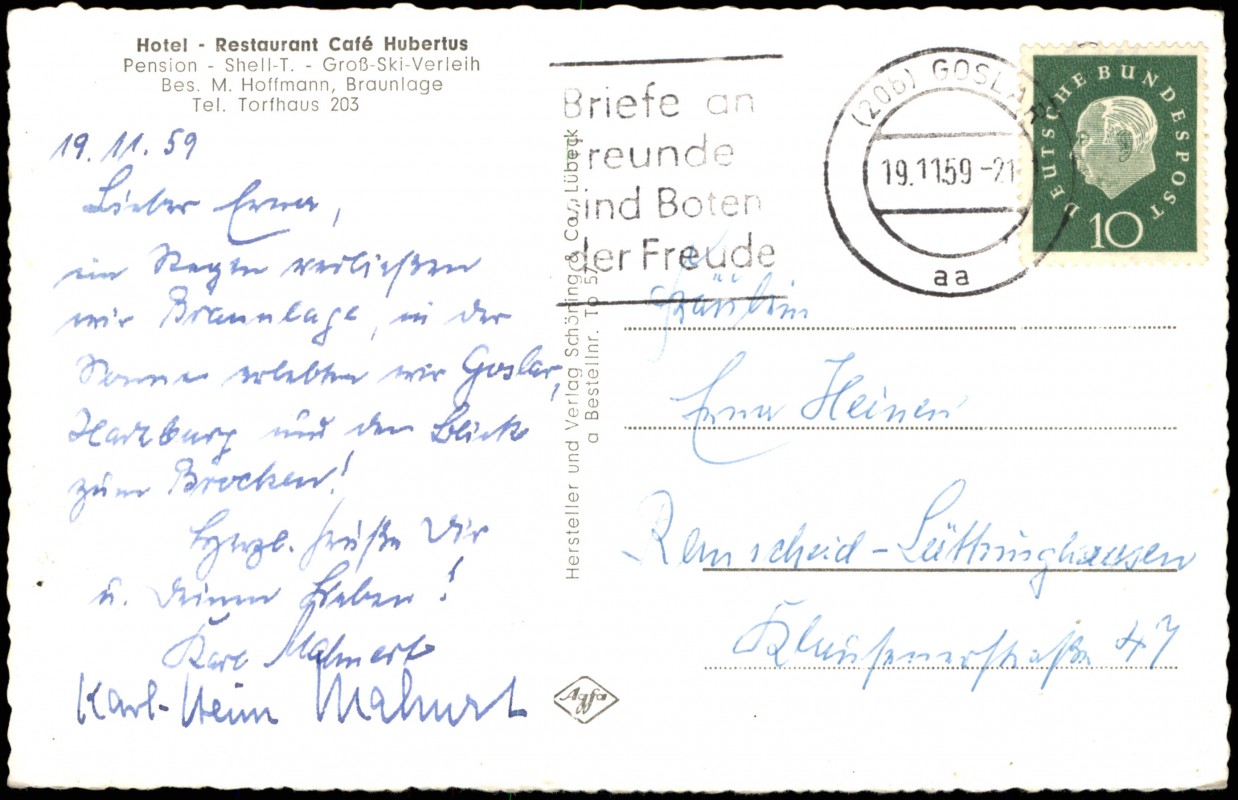 Hotel - Restaurant Café Hubertus
Pension - Shell-T. - Groß-Ski-Verleih
Bes. M. Hoffmann, Braunlage
Tel. Torfhaus 203
19.11.59
Liebe Erna,
im Regen verließen
wir Braunlage, in der
Sonne erlebten wir Goslar,
Harzburg und den Blick
zum Brocken!
Herzl. Grüße Dir
u. Deinen Lieben!
Karl Mahnert
Karl-Heinz Mahnert
Hersteller und Verlag Schöning & Co., Lübeck
a Bestellnr. To 57
Briefe an
Freunde
sind Boten
der Freude
(20b) GOSLAR
19.11.59-21
aa
DEUTSCHE BUNDESPOST
10
Fräulein
Erna Heinen
Remscheid-Lüttringhausen
Klausenerstraße 47
Agfa